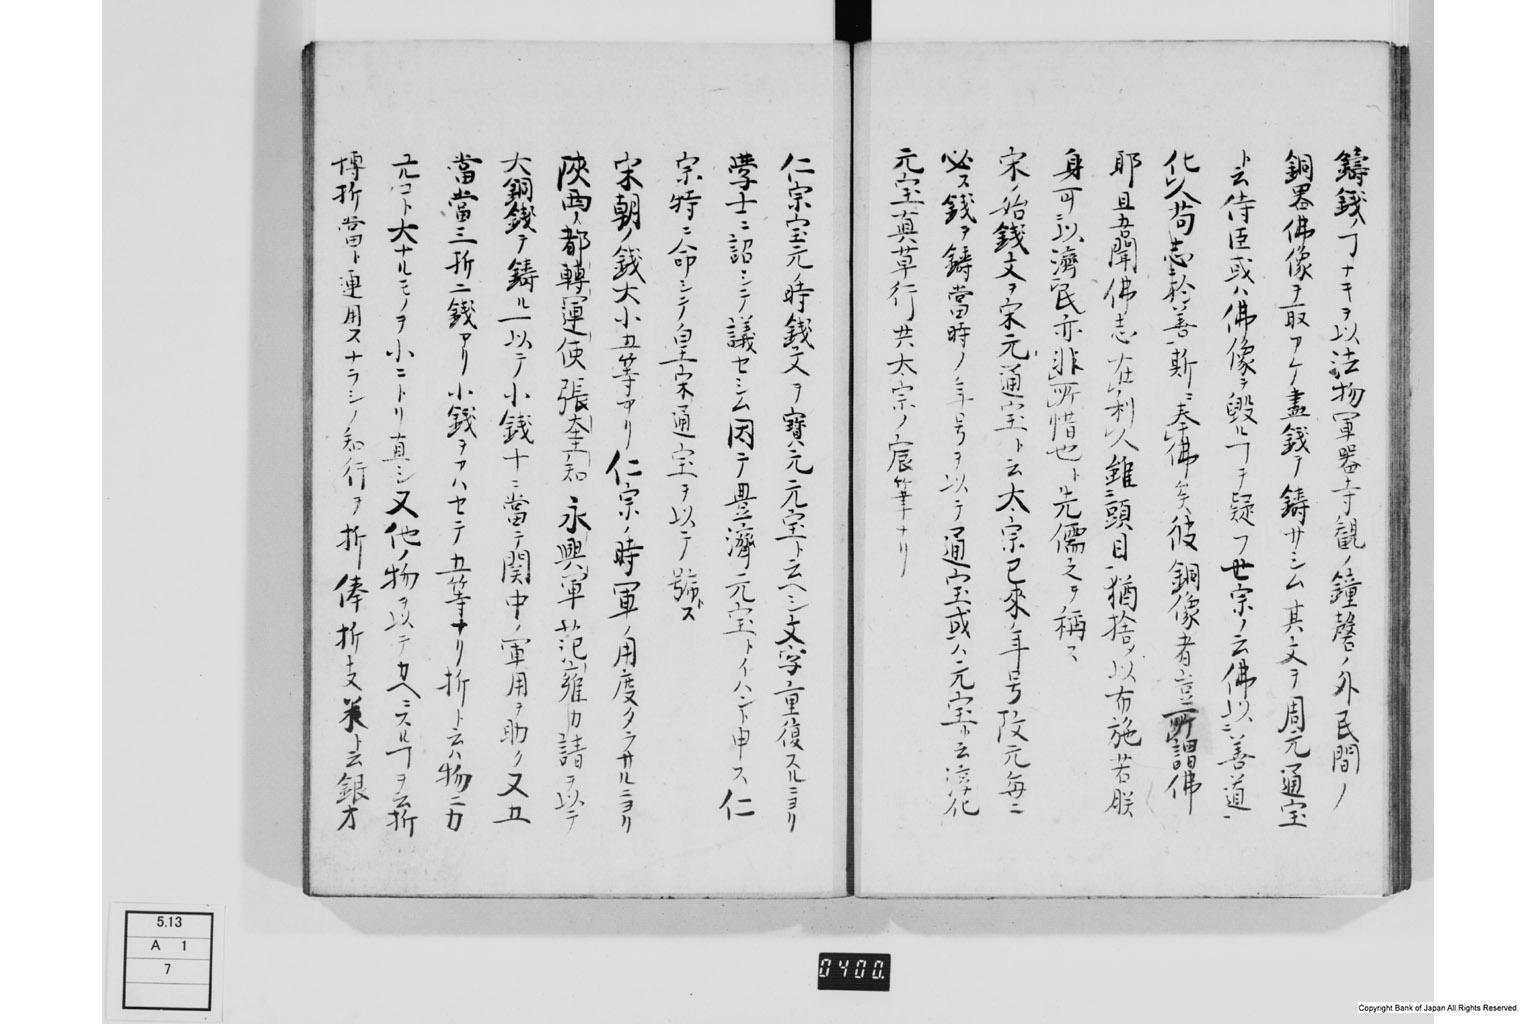 鋳錢ノヿナキヲ以法物軍器寺観ノ鐘磬ノ外民間ノ
銅器佛像ヲ取アケ盡錢ヲ鋳サシム其文ヲ周元通宝
ト云侍臣或ハ佛像ヲ毀ルヿヲ疑フ世宗ノ云佛以善道
化人苟志於善斯奉佛矣彼銅像者豈所謂佛
耶且吾聞佛志在利人雖頭目猶捨以布施若朕
身可以濟民亦非所惜也ト先儒之ヲ稱ス
宋ノ始錢文ヲ宋元通宝ト云太宗已來年号改元毎ニ
必ス錢ヲ鋳當時ノ年号ヲ以テ通宝或ハ元宝ト云淳化
元宝真草行共太宗ノ宸筆ナリ
仁宗宝元ノ時錢文ヲ寶元元宝ト云ヘシ文字重復スルニヨリ
學士ニ詔シテ議セシム因テ豊濟元宝トイハント申ス仁
宗特ニ命シテ皇宋通宝ヲ以テ號トス
宋朝ノ錢大小五等アリ仁宗ノ時軍ノ用度クラサルニヨリ
陝西ノ都轉運使張奎知永興軍范雍カ請ヲ以テ
大銅錢ヲ鋳ル一以テ小錢十ニ當テ関中ノ軍用ヲ助ク又五
當當三折二錢アリ小錢ヲアハセテ五等ナリ折ト云ハ物ニカ
元コト大ナルモノヲ小ニトリ直シ又他ノ物ヲ以テカヘニスルヿヲ云折
博折當ト連用スナラシノ知行ヲ折俸折支ト云銀才
5.13
A 1
7
0400.
Copyright Bank of Japan All Rights Reserved.